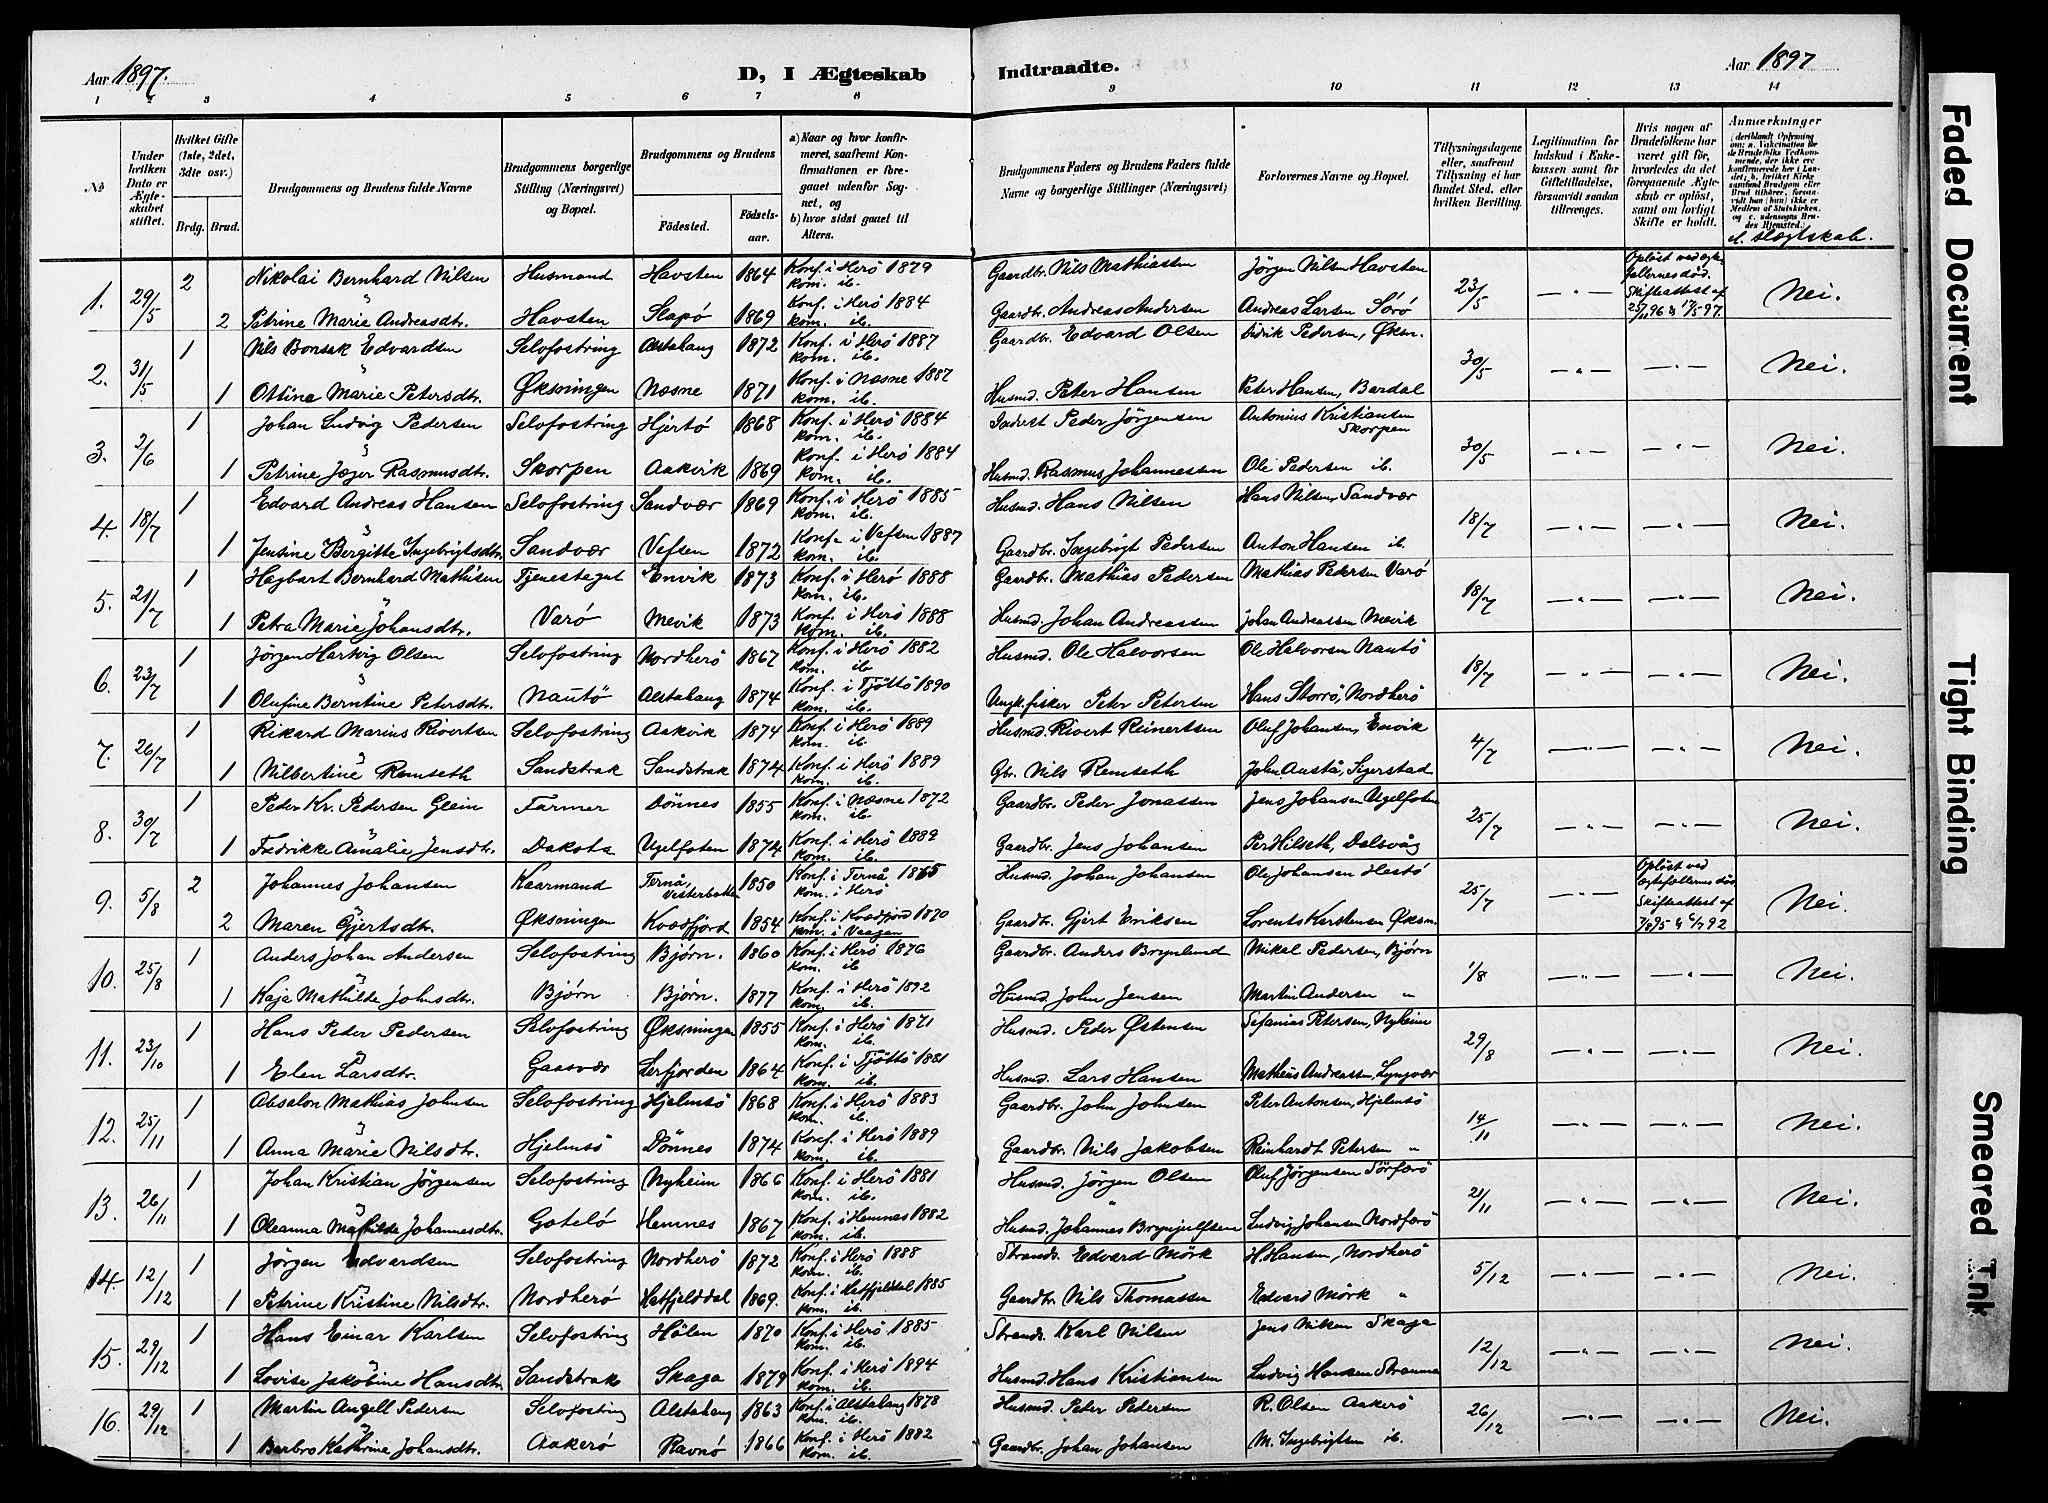 Aar 1897. D, I Ægteskab Indtraadte. Aar 1897
1 2 3 4 5 6 7 8 9 10 11 12 13 14
№ Under hvilken Dato er Ægteskabet stiftet. Hvilket Gifte (1ste, 2det, 3die osv.) Brdg. Brud. Brudgommens og Brudens fulde Navne Brudgommens borgerlige Stilling (Næringsvei) og Bopæl. Brudgommens og Brudens Fødested. Fødselsaar. a) Naar og hvor konfirmeret, saafremt Konfirmationen er foregaaet udenfor Sognet, og b) hvor sidst gaaet til Alters. Brudgommens Faders og Brudens Faders fulde Navne og borgerlige Stillinger (Næringsvei) Forlovernes Navne og Bopæl. Tillysningsdagene eller, saafremt Tillysning ei har fundet Sted, efter hvilken Bevilling. Legitimation for Indskud i Enkekassen samt for Giftetilladelse, forsaavidt saadan tiltrænges. Hvis nogen af Brudefolkene har været gift før, hvorledes da det foregaaende Ægteskab er opløst, samt om lovligt Skifte er holdt. Anmærkninger
d. Slægtskab.
1. 29/5 2 Nikolai Bernhard Nilsen Husmand Havsten 1864 Konf. i Herö 1879 kom. ib. Gaardbr. Nils Mathiassen Jörgen Nilsen Havsten 23/5 — " — Oplöst ved ægtefællernes död. Skifteattest af Nei.
2 Petrine Marie Andreasdtr. Havsten Slapö 1869 Konf. i Herö 1884 kom. ib. Gaardbr. Andreas Andersen Andreas Larsen Sörö
2. 31/5 1 Nils Bonsak Edvardsen Selofostring Alstahaug 1872 Konf. i Herö 1887 kom. ib. Gaardbr. Edvard Olsen Didrik Pedersen, Øksn. 30/5 — " — — " — Nei.
1 Ottine Marie Petersdtr. Øksningen Næsne 1871 Konf. i Næsne 1887 kom. ib. Husmd. Peter Hansen Peter Hansen, Bardal
3. 3/6 1 Johan Ludvig Pedersen Selofostring Hjertö 1868 Konf. i Herö 1884 kom. ib. Inderst Peder Jörgensen Antonius Kristiansen Skorpen 30/5 — " — — " — Nei.
1 Petrine Jæger Rasmusdtr. Skorpen Aakvik 1869 Konf. i Herö 1884 kom. ib. Husmd. Rasmus Johannessen Ole Pedersen ib.
4. 18/7 1 Edvard Andreas Hansen Selofostring Sandvær 1869 Konf. i Herö 1885 kom. ib. Husmd. Hans Nilsen Hans Nilsen, Sandvær 18/7 — " — — " — Nei.
1 Jensine Bergitte Ingebrigtsdtr. Sandvær Vefsen 1872 Konf. i Vefsen 1887 kom. ib. Gaardbr. Ingebrigt Pedersen Anton Hansen ib.
5. 21/7 1 Hagbart Bernhard Mathisen Tjenestegut Envik 1873 Konf. i Herö 1888 kom. ib. Gaardbr. Mathias Pedersen Mathias Pedersen Varö 18/7 — " — — " — Nei.
1 Petra Marie Johansdtr. Varö Mevik 1873 Konf. i Herö 1888 kom. ib. Husmd. Johan Andreassen Johan Andreassen Mevik
6. 23/7 1 Jörgen Hartvig Olsen Selofostring Nordherö 1867 Konf. i Herö 1882 kom. ib Husmd. Ole Halvorsen Ole Halvorsen Nautö 18/7 — " — — " — Nei.
1 Olufine Berntine Petersdtr. Nautö Alstahaug 1874 Konf. i Tjöttö 1890 kom. ib. Ungk. fisker Peter Petersen Hans Storrö, Nordherö
7. 26/7 1 Rikard Marius Rivertsen Selofostring Aakvik 1874 Konf. i Herö 1889 kom. ib. Husmd. Rivert Reinertsen Oluf Johansen, Envik 4/7 — " — — " — Nei.
1 Nilbertine Remseth Sandstrak Sandstrak 1874 Konf. i Herö 1889 kom. ib. Gbr. Nils Remseth John Austå, Sigerstad
8. 30/7 1 Peder Kr. Pedersen Glein Farmer Dönnes 1855 Konf. i Næsne 1872 kom. ib. Gaardbr. Peder Jonassen Jens Johansen Ugelfoten 25/7 — " — — " — Nei.
1 Fredrikke Amalie Jensdtr. Dakota Ugelfoten 1874 Konf. i Herö 1889 kom. ib. Gaardbr. Jens Johansen Per Hilseth, Dalsvåg
9. 5/8 2 Johannes Johansen Kaarmand Ternå, Vesterbotten 1850 Konf. i Ternå 1865 kom. i Herö Husmd. Johan Johansen Ole Johansen Hestö 25/7 — " — Oplöst ved ægtefællernes död. Skifteattest af Nei.
2 Maren Gjertsdtr. Øksningen Kvædfjord 1854 Konf. i Kvædfjord 1870 kom. i Vaagan Gaardbr. Gjert Eriksen Lorents Karstensen Øksn.
10. 25/8 1 Anders Johan Andersen Selofostring Bjørn. 1860 Konf. i Herö 1876 kom. ib. Gaardbr. Anders Brynlund Mikal Pedersen, Bjørn 1/8 — " — — " — Nei.
1 Kaja Mathilde Johnsdtr. Bjørn Bjørn. 1877 Konf. i Herö 1892 kom. ib. Husmd. John Jensen Martin Andersen "
11. 23/10 1 Hans Peder Pedersen Selofostring Øksningen 1855 Konf. i Herö 1871 kom. ib. Husmd. Peder Østensen Sefanias Petersen, Nyheim 29/8 — " — — " — Nei.
1 Elen Larsdtr. Gaasvær Lerfjorden 1864 Konf. i Tjöttö 1881 kom. ib. Husmd. Lars Hansen Mathæus Andreassen, Lyngvær
12. 25/11 1 Absalon Mathias Johnsen Selofostring Hjelmsö 1868 Konf. i Herö 1883 kom. ib. Gaardbr. John Johnsen Peter Antonsen, Hjelmsö 14/11 — " — — " — Nei.
1 Anna Marie Nilsdtr. Hjelmsö Dönnes 1874 Konf. i Herö 1889 kom. ib. Gaardbr. Nils Jakobsen Reinhardt Petersen "
13. 26/11 1 Johan Kristian Jörgensen Selofostring Nyheim 1866 Konf. i Herö 1881 kom. ib. Husmd. Jörgen Olsen Oluf Jörgensen Sörfærö 21/11 — " — — " — Nei.
1 Oleanna Mathilde Johannesdtr. Gotelö Hemnes 1867 Konf. i Hemnes 1882 kom. ib. Husmd. Johannes Brynjulfsen Ludvig Johansen Nordfærö
14. 12/12 1 Jörgen Edvardsen Selofostring Nordherö 1872 Konf. i Herö 1888 kom. ib. Strands. Edvard Mörk H. Hansen, Nordherö 5/12 — " — — " — Nei.
1 Petrine Kristine Nilsdtr. Nordherö Hatfjelddal 1869. Konf. i Hatfjelddal 1885 kom. ib. Gaardbr. Nils Thomassen Edvard Mörk "
15. 29/12 1 Hans Einar Karlsen Selofostring Hölen 1870 Konf. i Herö 1885 kom. ib. Strands. Karl Nilsen Jens Nilsen Skaga 12/12 — " — — " — Nei.
1 Lovise Jakobine Hansdtr. Sandstrak Skaga 1879 Konf. i Herö 1894 kom. ib. Husmd. Hans Kristiansen Ludvig Hansen Strauma
16. 29/12 1 Martin Angell Pedersen Selofostring Alstahaug 1863 Konf. i Alstahaug 1878 kom. ib. Husmd. Peter Pedersen R. Olsen Aakerö 26/12 — " — — " — Nei.
1 Barbro Kathrine Johansdtr. Aakerö Ravnö 1866 Konf. i Herö 1882 kom. ib. Gaardbr. Johan Johansen M. Ingebrigtsen ib.
Faded Document
Tight Binding
Smeared Ink